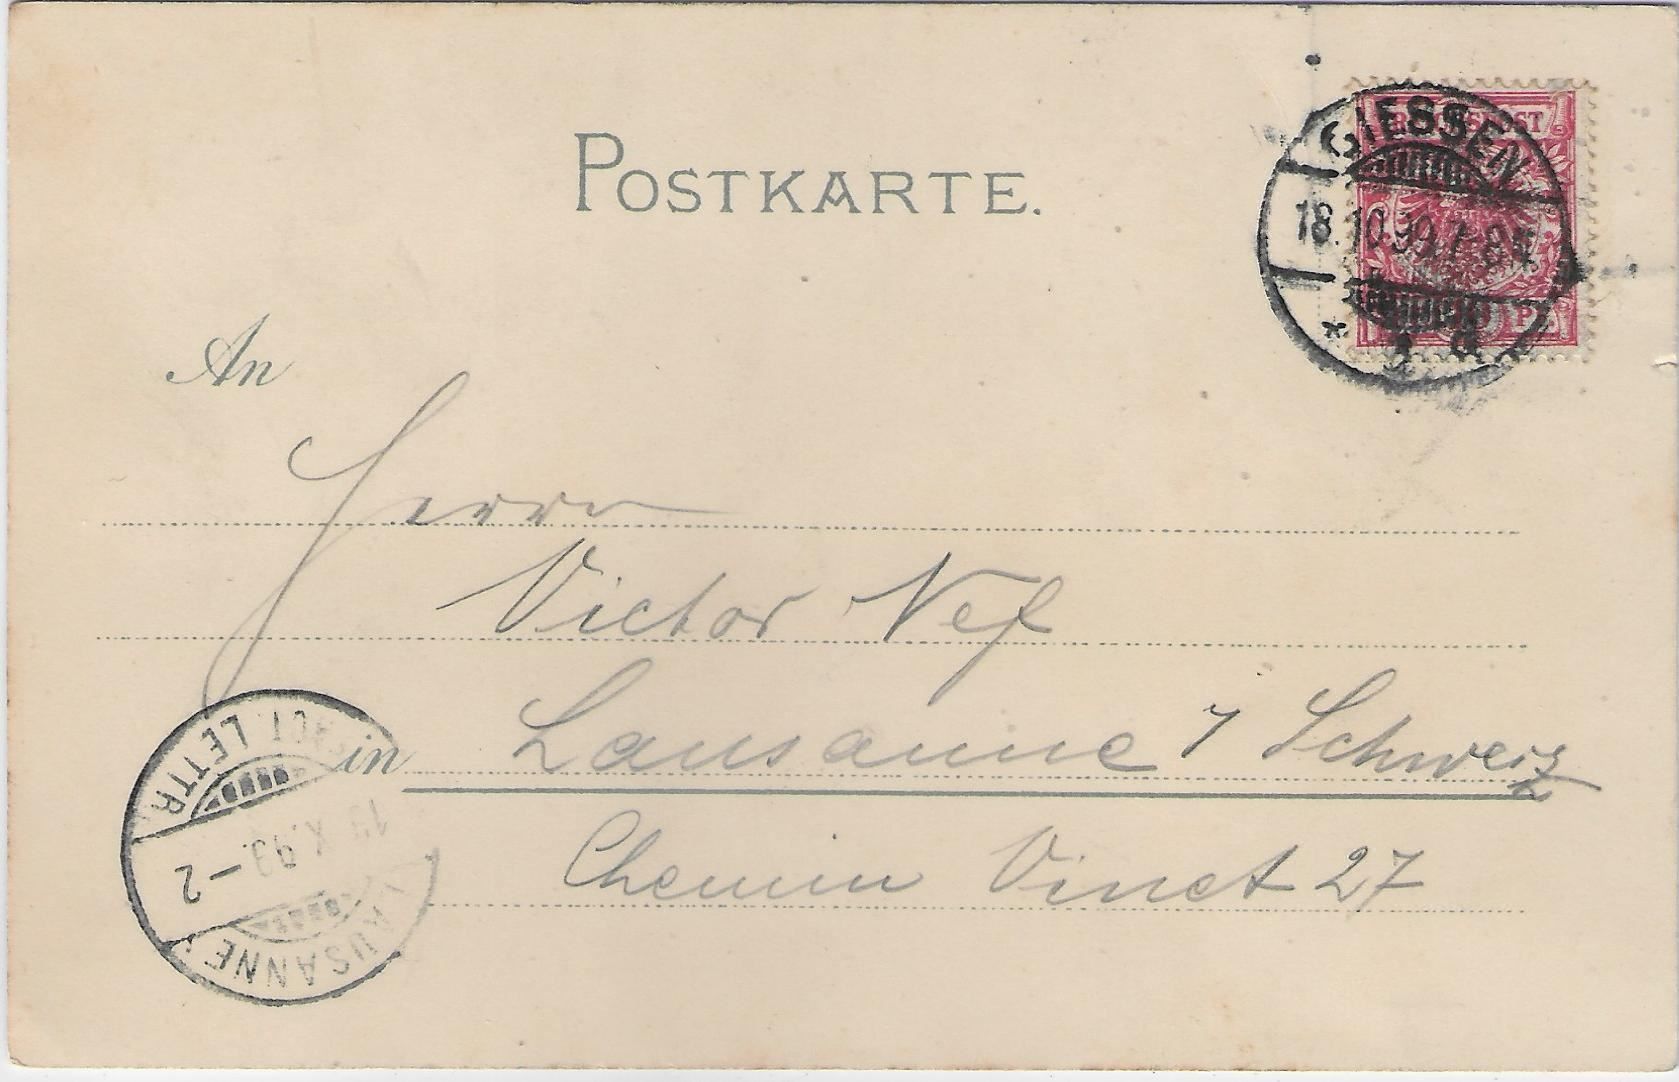 POSTKARTE.
REICHSPOST
GIESSEN
18.10.99.7-8N
* 1 a
PF.
An
Herrn
Victor Nef
in Lausanne / Schweiz
Chemin Vinet 27
LETTR.
X.99.–2
LAUSANNE